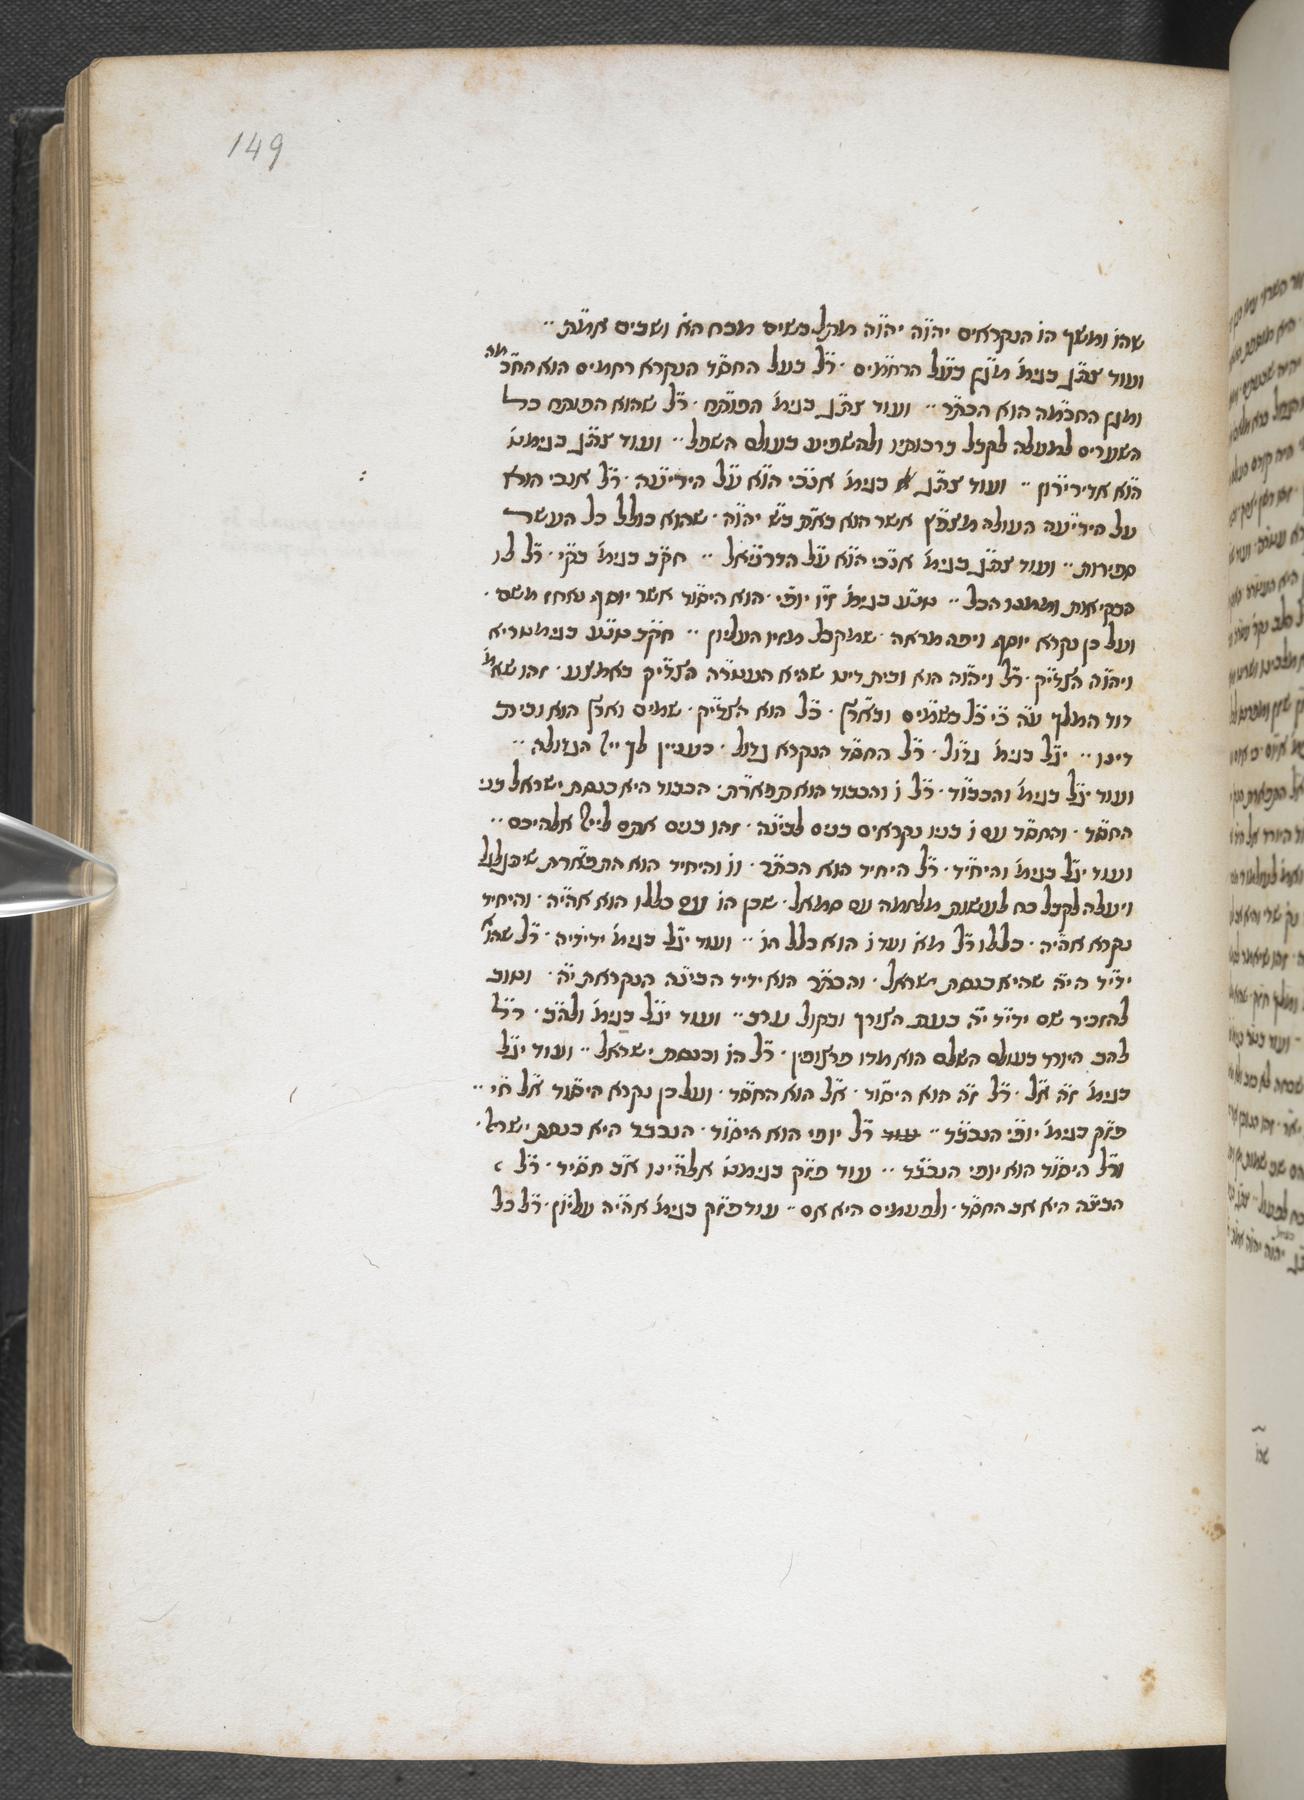 149
שהו ומשך הו הנקראים יהוה יהוה מתקבשים מכח הא ושבים אמת
ועוד צתג בגימ מנע בעל הרחמים רל בעל החסד הנקרא רחמים הוא החכמה
ומנע החכמה הוא הכתר ועוד צתג בגימ הפותח רל שהוא הפותח כל
השערים למעלה לקבל ברכותיו ולהשפיע בעולם השפל ועוד צתג בגימט
הוא אדירירון ועוד צתג בגימ אנכי הוא על היריעה רל אנכי הוא
על היריעה העולה אשר הוא שהוא כולל כל העשר
ספירות ועוד צתג בגימ אנכי הוא על חקב בגימ בקי רל לו
הבקיאות וממנו הכל טנע בגימ זיו יופי הוא היסוד אשר יוסף נאחז משם
ועל כן נקרא יוסף ויפה מראה שמקבל מזיו העליון חקב טנע בגימטריא
ויהוה הצדיק רל ויהוה הוא ובית דינו שהיא העטרה הצדיק באמצע זהו שאמ
דוד המלך עה כי כל בשמים ובארץ כל הוא הצדיק שמים וארץ הוא ובית
דינו יגל בגימ גדול רל החסד הנקרא גדול כענין לך ייי הגדולה
ועוד יגל בגימ והכבוד רל ו והכבוד הוא תפארת הכבוד היא כנסת ישראל בני
החסד והחסד עם ו בניו נקראים בנים לבינה זהו בנים אתם לייי אלהיכם
ועוד יגל בגימ והיחיד רל היחיד הוא הכתר וו והיחיד הוא התפארת
ויעלה לקבל כח לעשות מלחמה עם סמאל שכן הו עם כללו הוא אהיה והיחיד
נקרא אהיה כללו רל מא ועד ו הוא כלל הו ועוד יגל בגימ ידידיה רל שהוא
ידיד היה שהיא כנסת ישראל והכתר הוא ידיד הבינה הנקראת יה וטוב
להזכיר שם ידיד יה בעת הצורך ובקול ערב ועוד יגל בגימ ולהב רל
להב היורד בעולם השפל הוא מדו פרצופין רל הו וכנסת ישראל ועוד יגל
בגימ זה אל רל זה הוא היסוד אל הוא החסד ועל כן נקרא היסוד אל חי
פזק בגימ יופי הנכבד רל יופי הוא היסוד הנכבד היא כנסת ישראל
ורל היסוד הוא יופי הנכבד עוד פזק בגימט אלהינו אב חסיד רל
הבינה היא אב החסד ולפעמים היא אם עוד פזק בגימ אהיה עליון רל כל